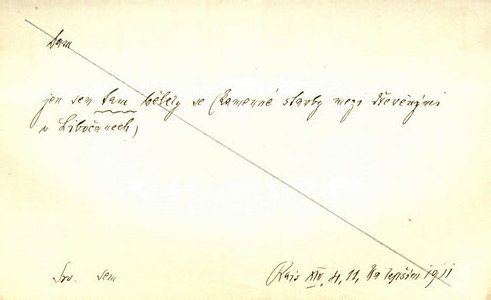 tam
jen sem tam bělely se (kamenné stavby mezi dřevěnými
v Libočanech)
Srv. sem
Rais XIV, 4, 11, Na lepším 1911